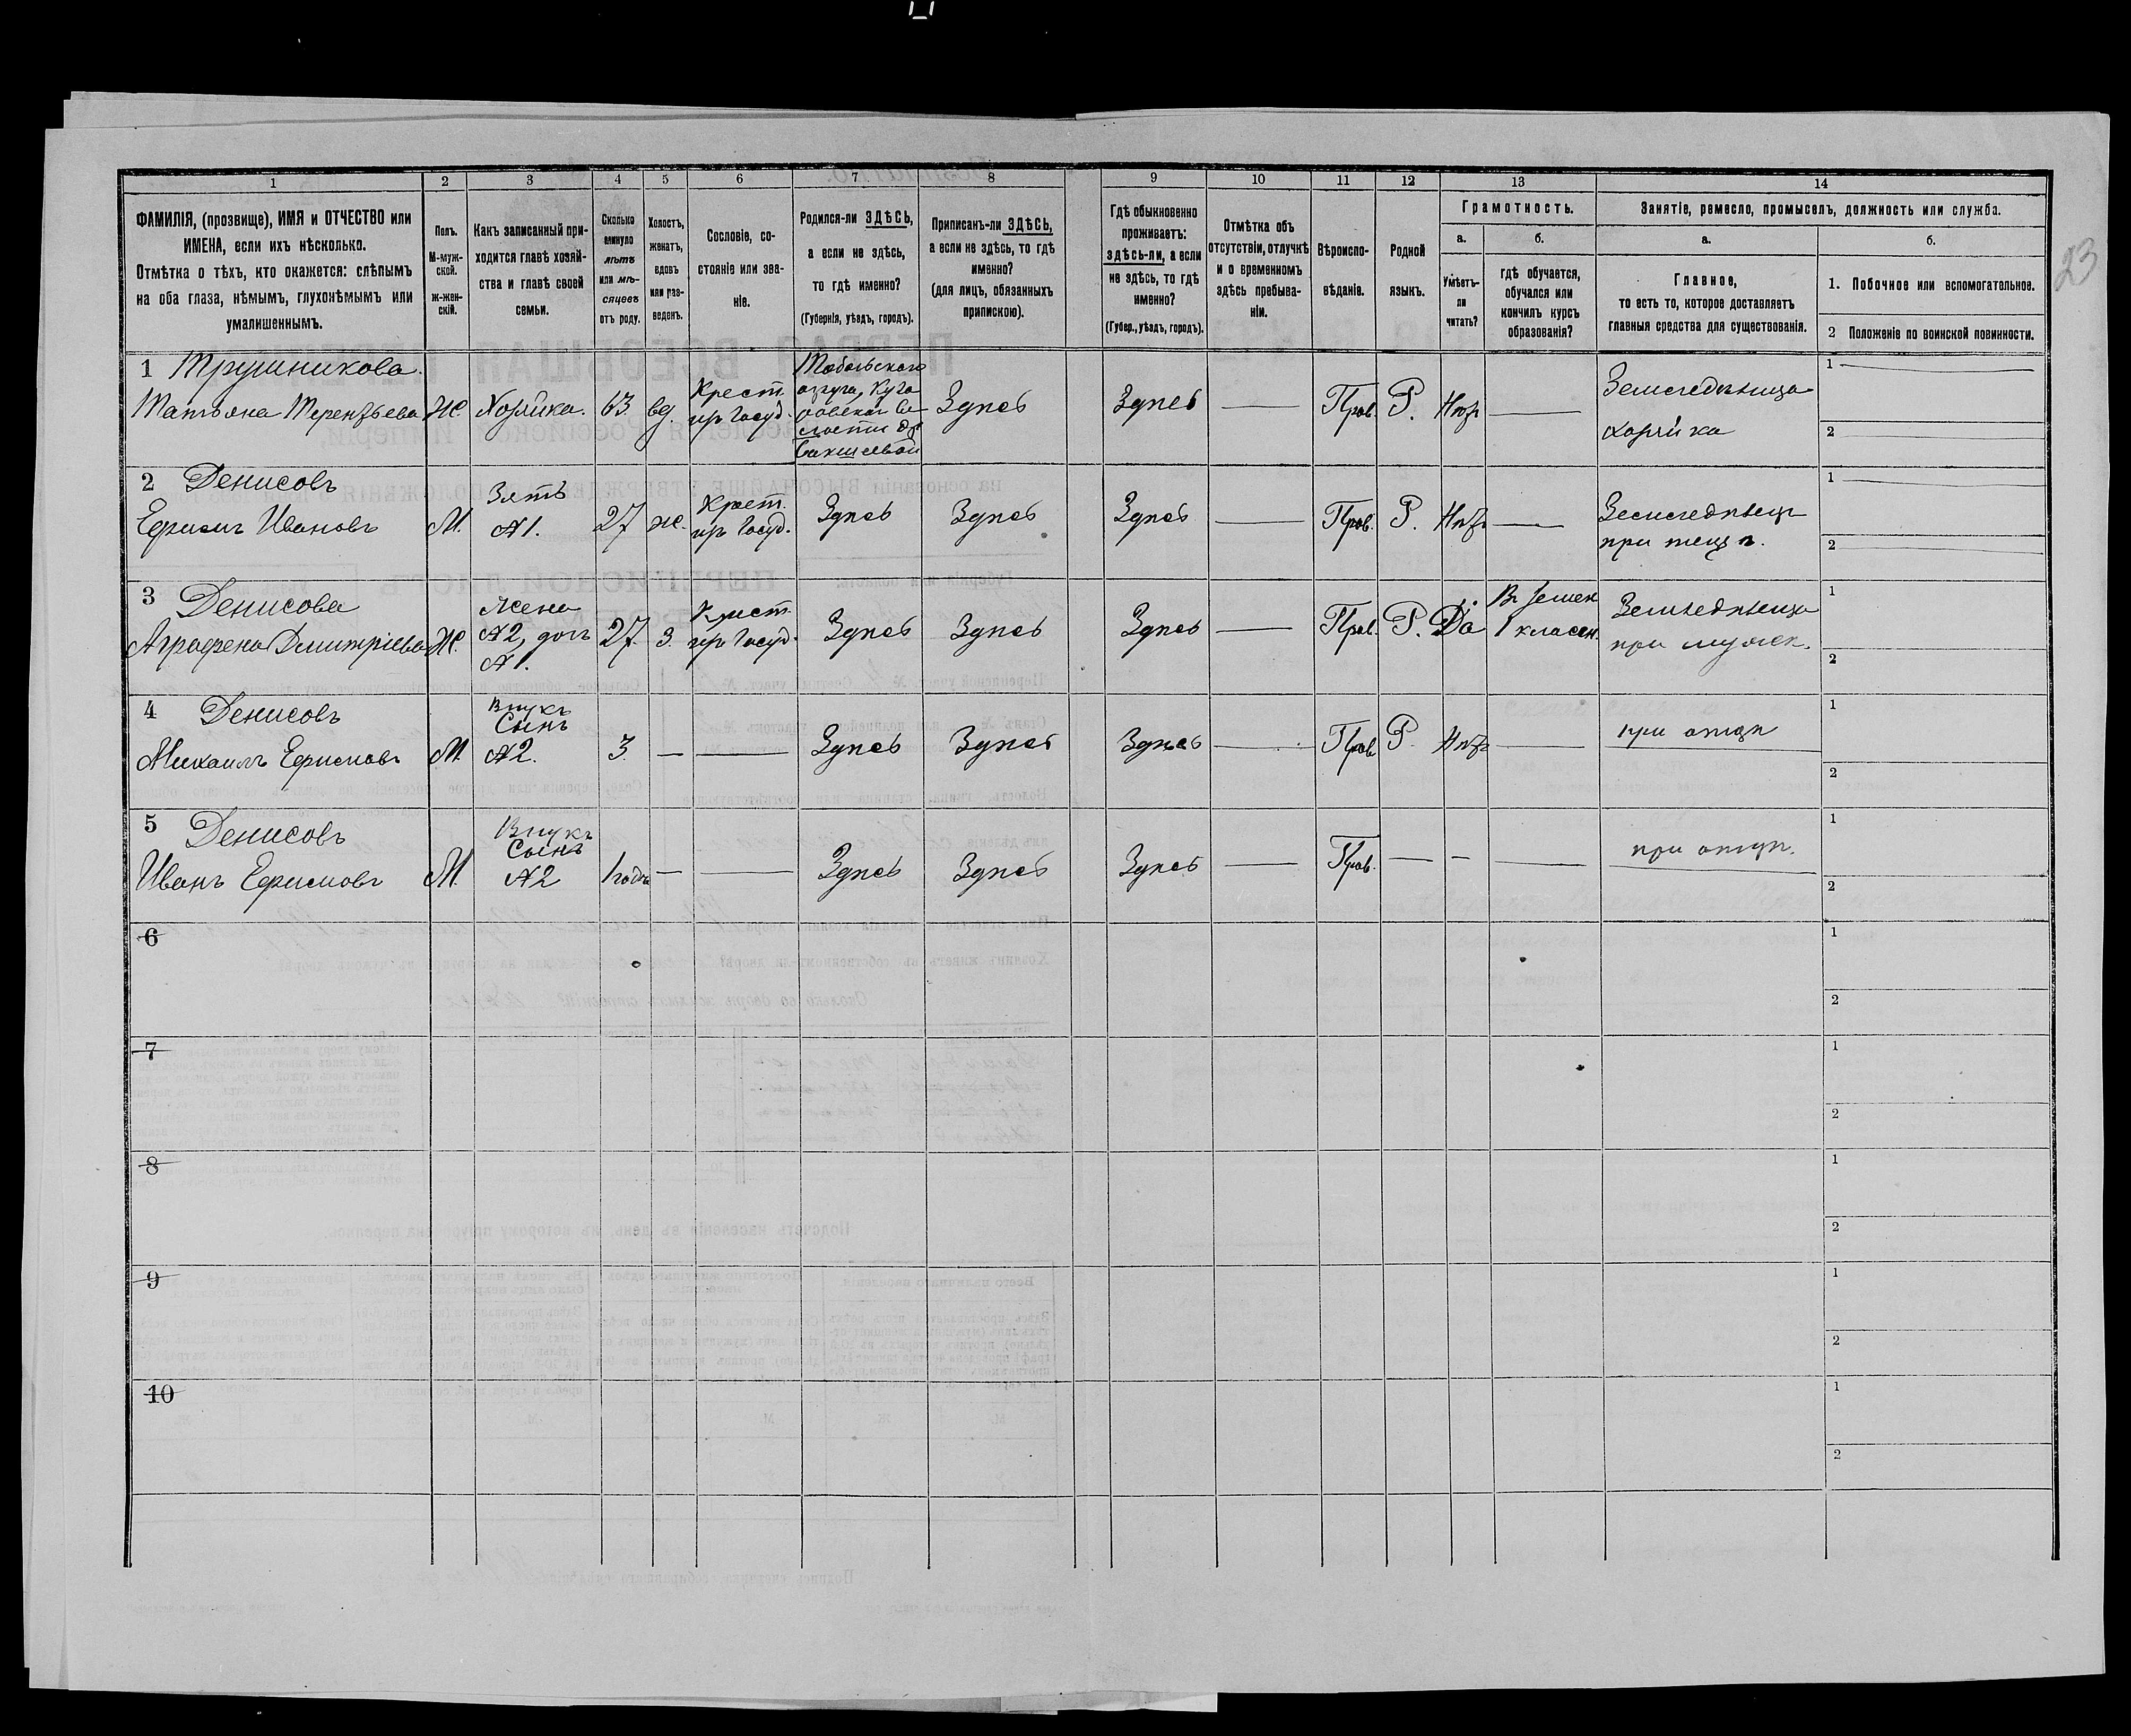 23
1 2 3 4 5 6 7 8 9 10 11 12 13 14
ФАМИЛІЯ, (прозвище), ИМЯ и ОТЧЕСТВО или
ИМЕНА, если ихъ нѣсколько.
Отмѣтка о тѣхъ, кто окажется: слѣпымъ
на оба глаза, нѣмымъ, глухонѣмымъ или
умалишеннымъ.
Полъ.
М-муж-
ской.
ж-жен-
скій.
Какъ записанный при-
ходится главѣ хозяй-
ства и главѣ своей
семьи.
Сколько
минуло
лѣтъ
или мѣ-
сяцевъ
отъ роду.
Холостъ,
женатъ,
вдовъ
или раз-
веденъ.
Сословіе, со-
стояніе или зва-
ніе.
Родился-ли ЗДѢСЬ,
а если не здѣсь,
то гдѣ именно?
(Губернія, уѣздъ, городъ).
Приписанъ-ли ЗДѢСЬ,
а если не здѣсь, то гдѣ
именно?
(для лицъ, обязанныхъ
припискою).
Гдѣ обыкновенно
проживаетъ:
здѣсь-ли, а если
не здѣсь, то гдѣ
именно?
(Губер., уѣздъ, городъ).
Отмѣтка объ
отсутствіи, отлучкѣ
и о временномъ
здѣсь пребыва-
ніи.
Вѣроиспо-
вѣданіе.
Родной
языкъ.
Грамотность.
а.
Умѣетъ-
ли
читать?
б.
гдѣ обучается,
обучался или
кончилъ курсъ
образованія?
Занятіе, ремесло, промыселъ, должность или служба.
а.
Главное,
то есть то, которое доставляетъ
главныя средства для существованія.
б.
1. Побочное или вспомогательное.
2 Положеніе по воинской повинности.
1 Трушникова
Татьяна Терентьева
Ж
Хозяйка.
63.
вд.
Крест.
изъ Госуд.
Тобольскаго
округа,
Здѣсь
Здѣсь
—
Прав.
Р.
Нѣтъ
—
Земледѣлица
хозяйка
1 —
2 —
2 Денисовъ
Ефимъ Ивановъ
М.
Зять
№1.
27
ж.
Крест.
изъ Госуд.
Здѣсь
Здѣсь
Здѣсь
—
Прав.
Р.
Нѣтъ
—
Земледѣлецъ
при тещѣ.
1 —
2 —
3 Денисова
Аграфена Дмитріева
Ж.
Жена
№2, дочь
№1.
27
З.
Крест.
изъ Госуд.
Здѣсь
Здѣсь
Здѣсь
—
Прав.
Р.
Да
1 классн.
Земледѣлица
при мужѣ.
1
2
4 Денисовъ
Михаилъ Ефимовъ
М.
Внукъ
Сынъ
№2.
3.
—
—
Здѣсь
Здѣсь
Здѣсь
—
Прав
Р.
Нѣтъ
—
при отцѣ
1
2
5 Денисовъ
Иванъ Ефимовъ
М.
Внукъ
Сынъ
№2
1 годъ
—
—
Здѣсь
Здѣсь
Здѣсь
—
Прав.
—
—
—
при отцѣ.
1
2
6
1
2
7
1
2
8
1
2
9
1
2
10
1
2